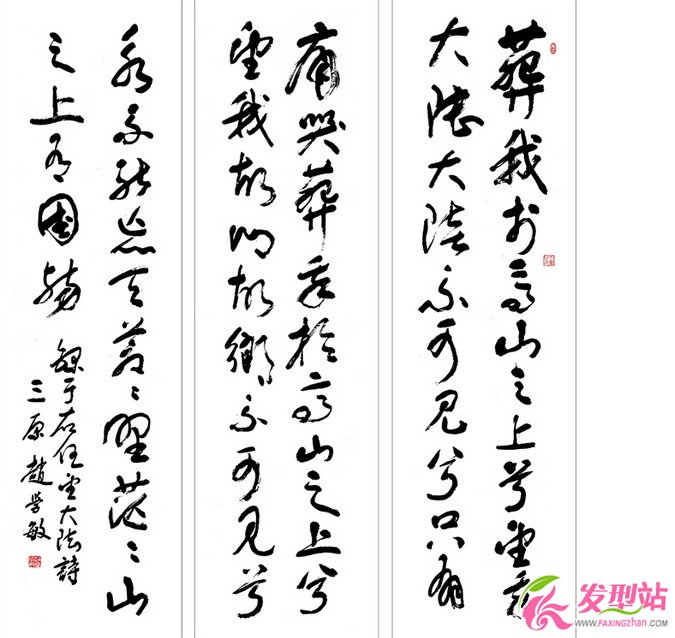 葬我於高山之上兮望我
大陸大陸不可見兮只有
痛哭葬我於高山之上兮
望我故鄉故鄉不可見兮
永不能忘天蒼々野茫々山
之上有國殤
錄于右任望大陸詩
三原趙學敏
发型站
www.FAXINGZHAN.com